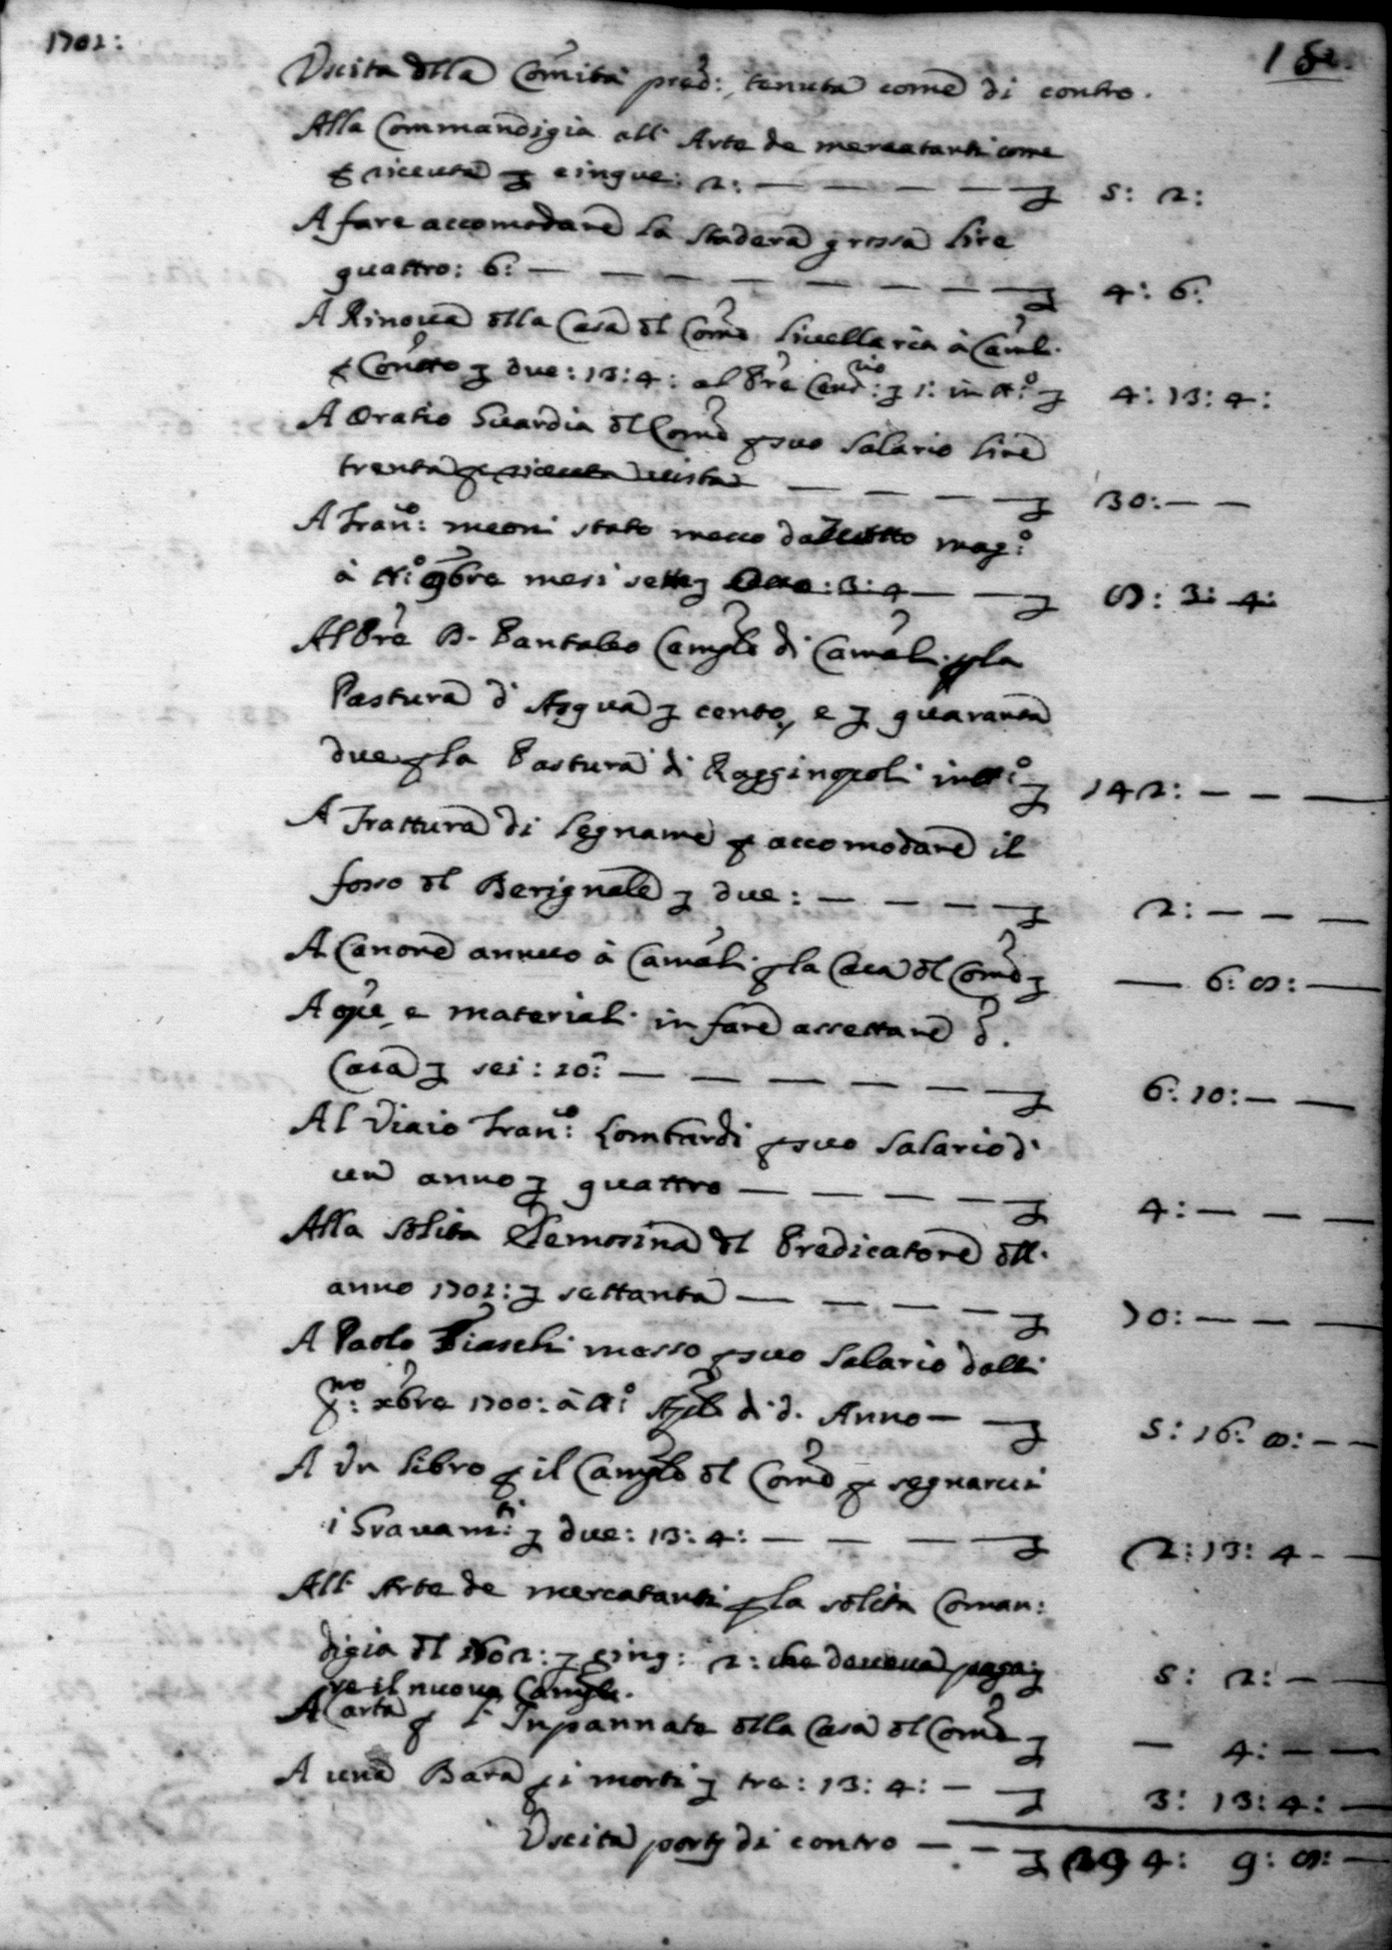 1702: 182.
Uscita dlla Com.ità pred: tenuta come di contro.
Alla Commandigia all' Arte de mercatanti come
p riceuta £ cinque: 2: — — — — £ 5: 2:
A fare accomodare la stadera grossa lire
quattro: 6: — — — — — — £ 4: 6:
A Rinoua dlla Casa dl Com.e liuellaria à Camli.
e Contto £ due: 13: 4: al Pre Cam.rio: £ 1: in tt.o £ 4: 13: 4:
A Oratio Guardia dl Com.e p suo salario lire
trenta p riceuta uista — — — — £ 30: — —
A Fran.co: meoni stato messo da Lutto mag.o
à tt.o 9bre mesi sette £ Otto: 3: 4 — — £ 8: 3: 4:
Al Pre D. Pantaleo Camglo di Camali. p la
Pastura d' Asqua £ cento, e £ quaranta
due p la Pastura di Ragginopoli in tt.o £ 142: — — —
A Trattura di legname p accomodare il
fosso dl Berignale £ due: — — — — £ 2: — — —
A Canone annuo à Camali. p la Casa dl Com.e £ — 6: 8: —
A opre, e materiali in fare assettare d.
Casa £ sei: 10: — — — — — — £ 6: 10: — —
Al Viaio Fran.co: Lombardi p suo salario d'
un anno £ quattro — — — — — £ 4: — — —
Alla solita Elemosina dl Predicatore dll'
anno 1702: £ settanta — — — — £ 70: — — —
A Paolo Biaschi messo p suo salario dalli
p.mo: xbre 1700: à tt.o Aple di d. Anno — — £ 5: 16: 8: — —
A Un libro p il Camglo dl Com.e p segnarui
i Grauam.ti: £ due: 13: 4: — — — — £ 2: 13: 4 - —
All' Arte de mercatanti p la solita Coman:
digia dl 1602: £ cinq: 2: che doueua paga £ 5: 2: — —
re il nuouo Camglo.
A Carta p l' Inpannate dlla Casa dl Com.e £ — 4: — —
A una Bara p i morti £ tre: 13: 4: — — £ 3: 13: 4: —
Uscita porti di contro — — — £ 294: 9: 8: —